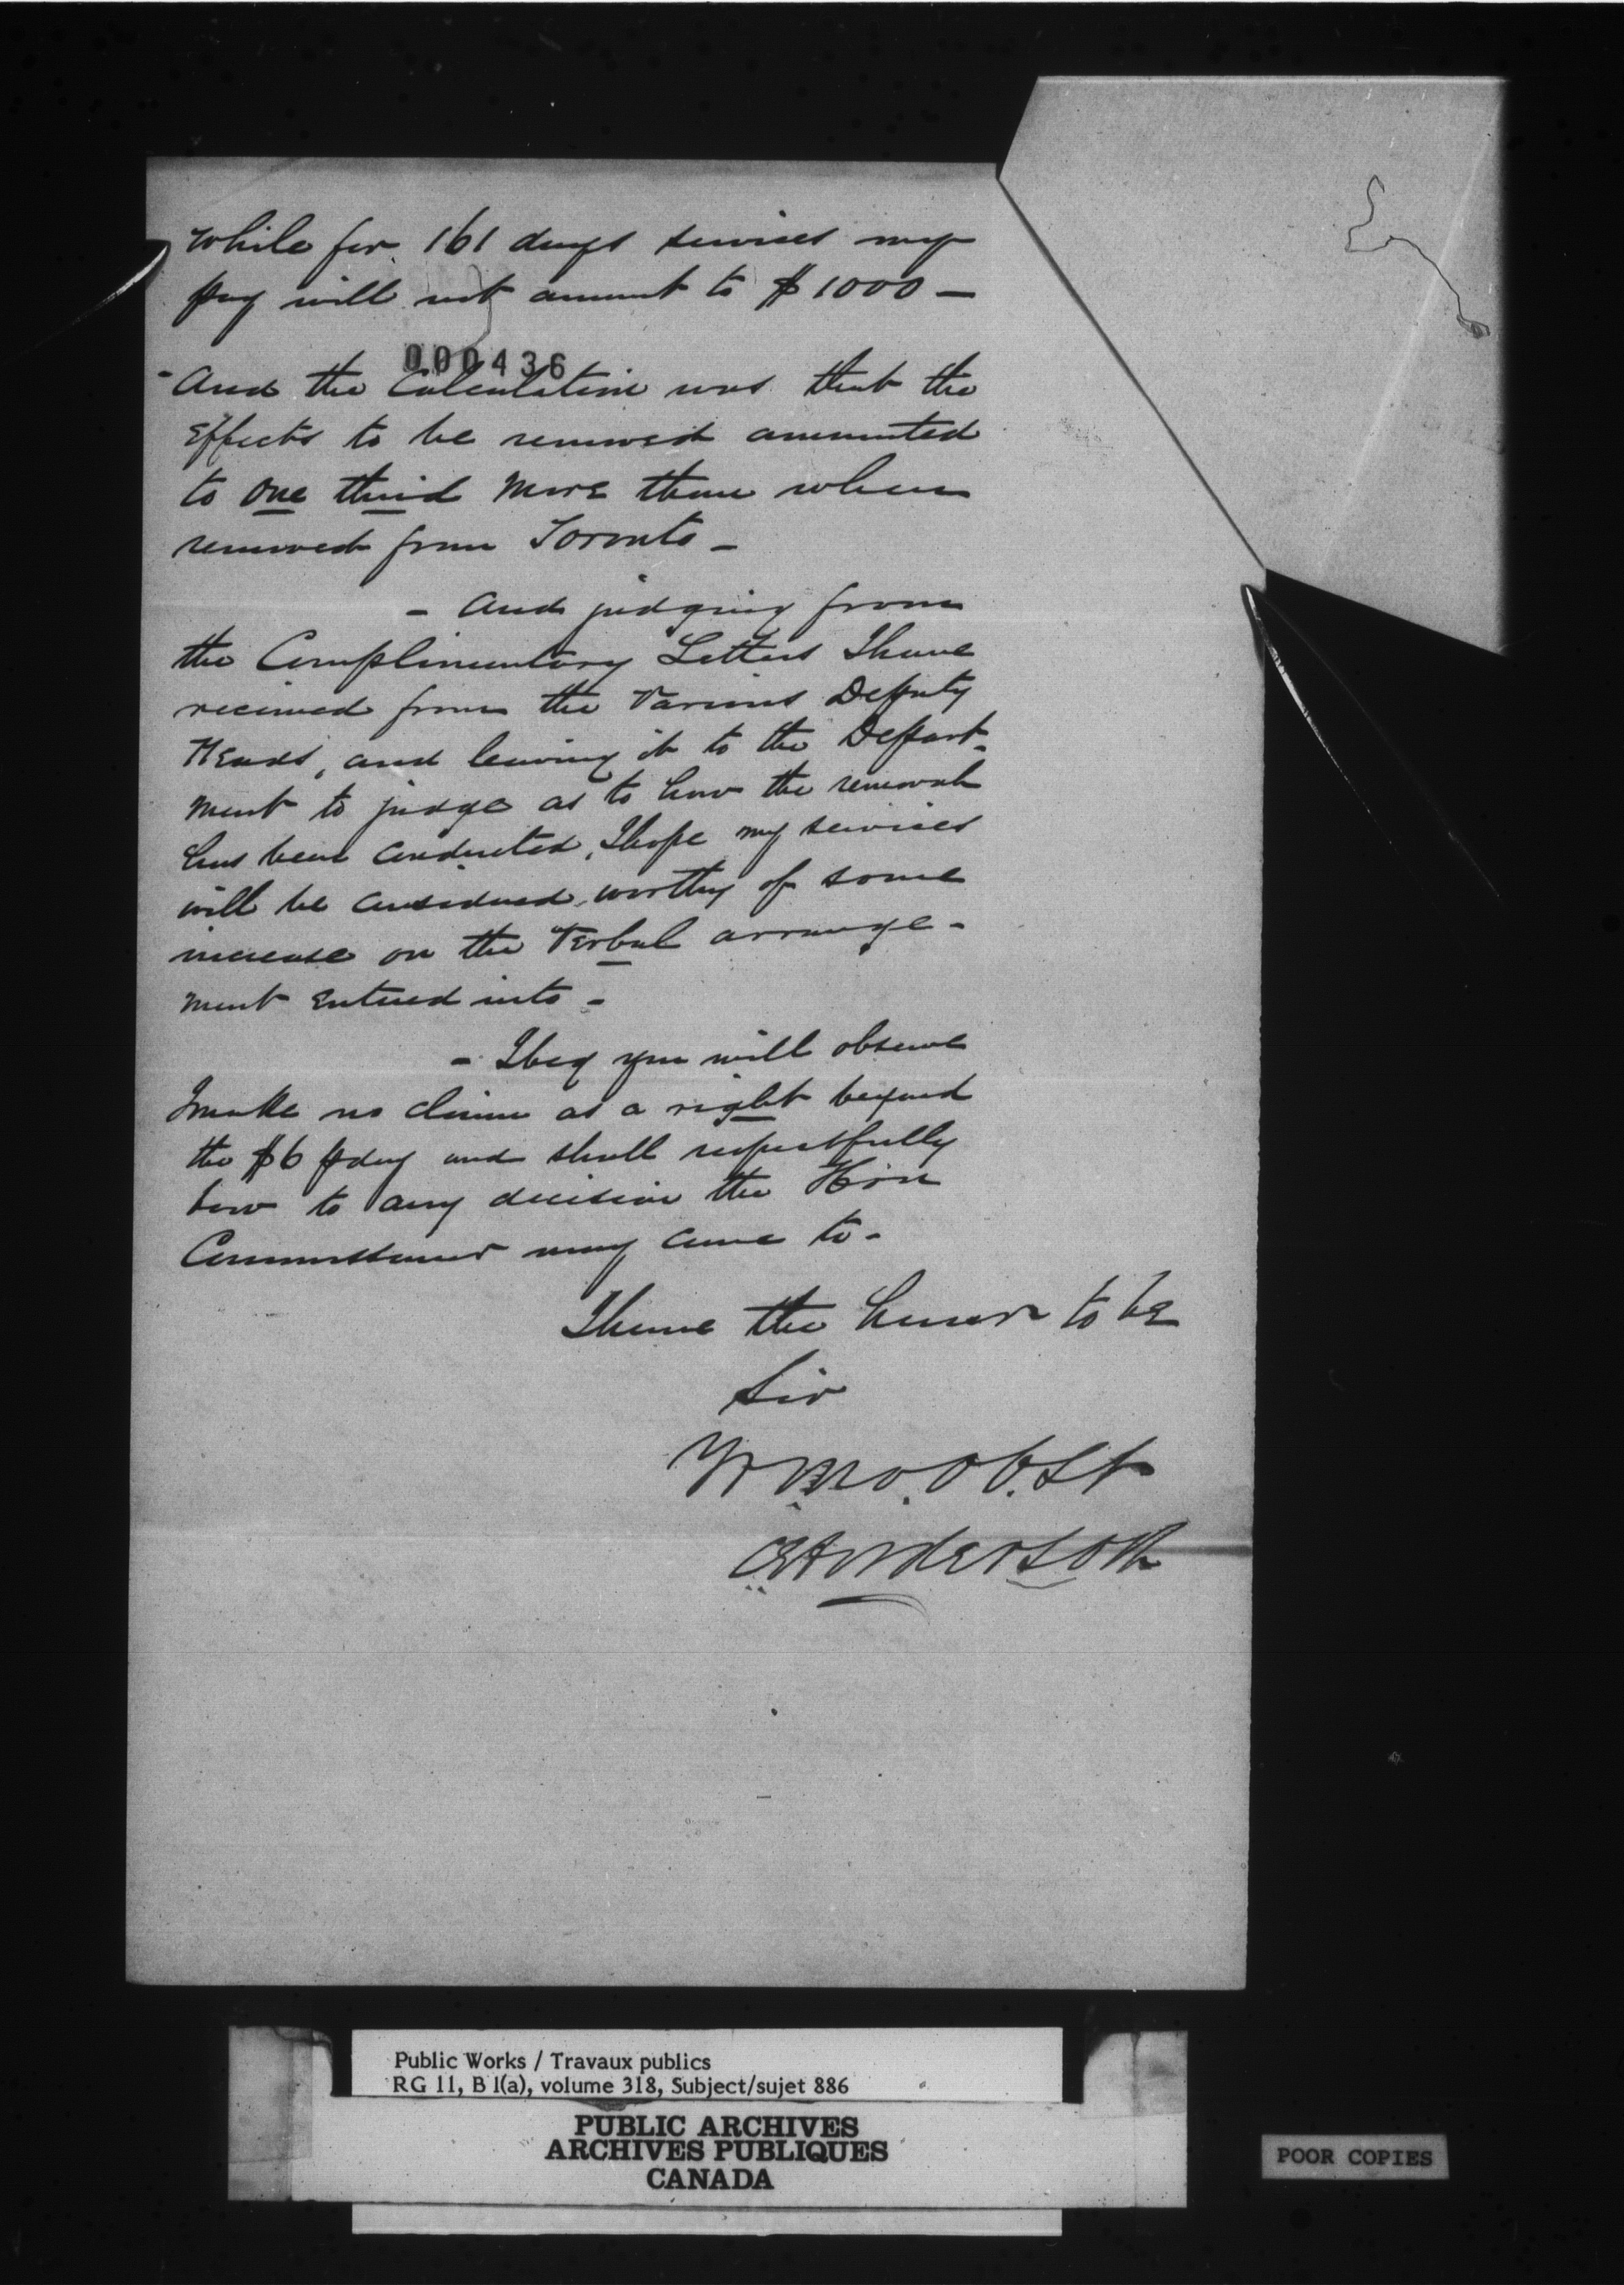 While for 161 days services my
pay will not amount to $1000 —
000436
- And the Calculation was that the
Effects to be removed ammounted
to one third more than when
removed from Toronto -
- And judging from
the Complimentary Letters I have
received from the Various Deputy
Heads, and leaving it to the Depart-
ment to judge as to how the removal
has been conducted, I hope my services
will be considered worthy of some
increase on the Verbal arrange-
ment entered into -
- I beg you will observe
I make no claim as a right beyond
the $6 pday and shall respectfully
bow to any decision the Hon
Commissioner may come to -
I have the honor to be
Sir
Yr Mo. Ob. St
Anderson
Public Works / Travaux publics
RG 11, B 1(a), volume 318, Subject/sujet 886
PUBLIC ARCHIVES
ARCHIVES PUBLIQUES
CANADA
POOR COPIES